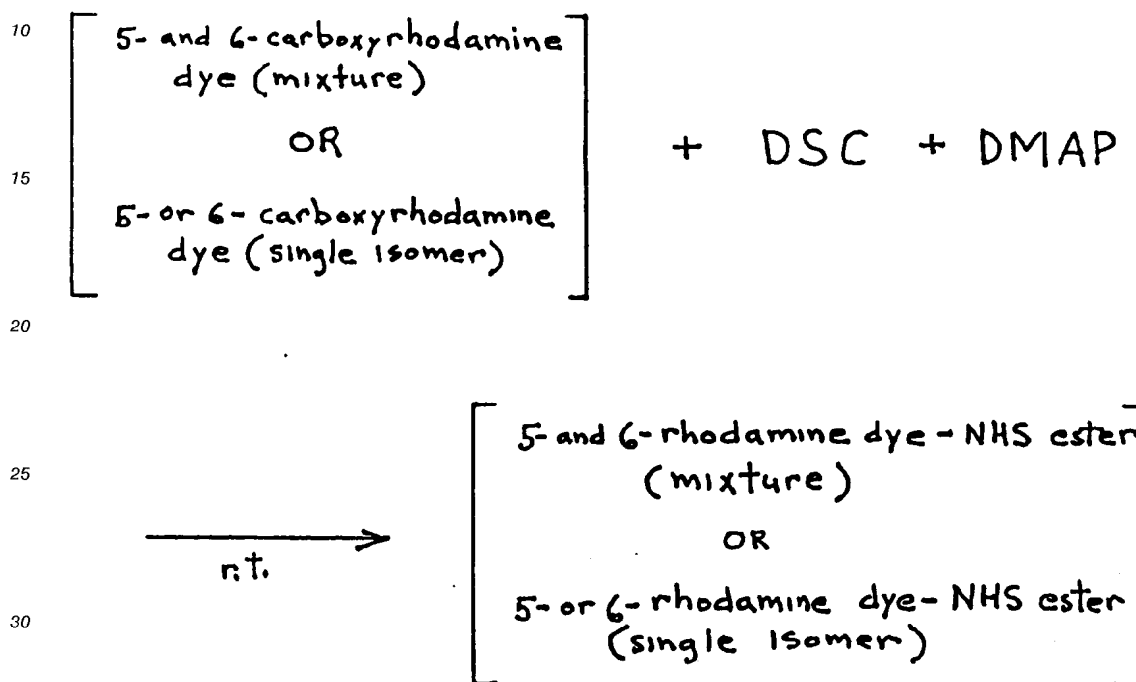 10
5- and 6-carboxyrhodamine
dye (mixture)
OR
15
5- or 6-carboxyrhodamine
dye (single isomer)
+ DSC + DMAP
20
25
5- and 6-rhodamine dye-NHS ester
(mixture)
r.t.
OR
30
5- or 6-rhodamine dye-NHS ester
(single isomer)